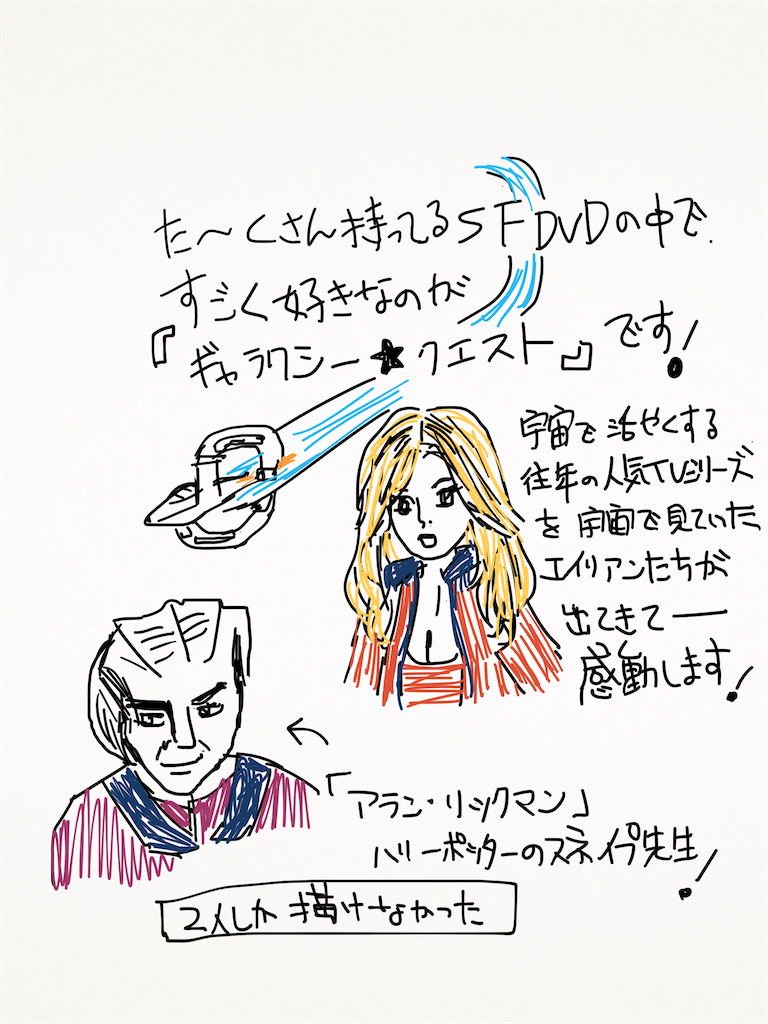 た〜くさん持ってるSF DVDの中で
すごく好きなのが
『ギャラクシー★クエスト』です!
宇宙で活やくする
往年の人気TVシリーズ
を宇宙で見ていた
エイリアンたちが
出てきてー
感動します!
「アラン・リックマン」
ハリーポッターのスネイプ先生!
2人しか描けなかった